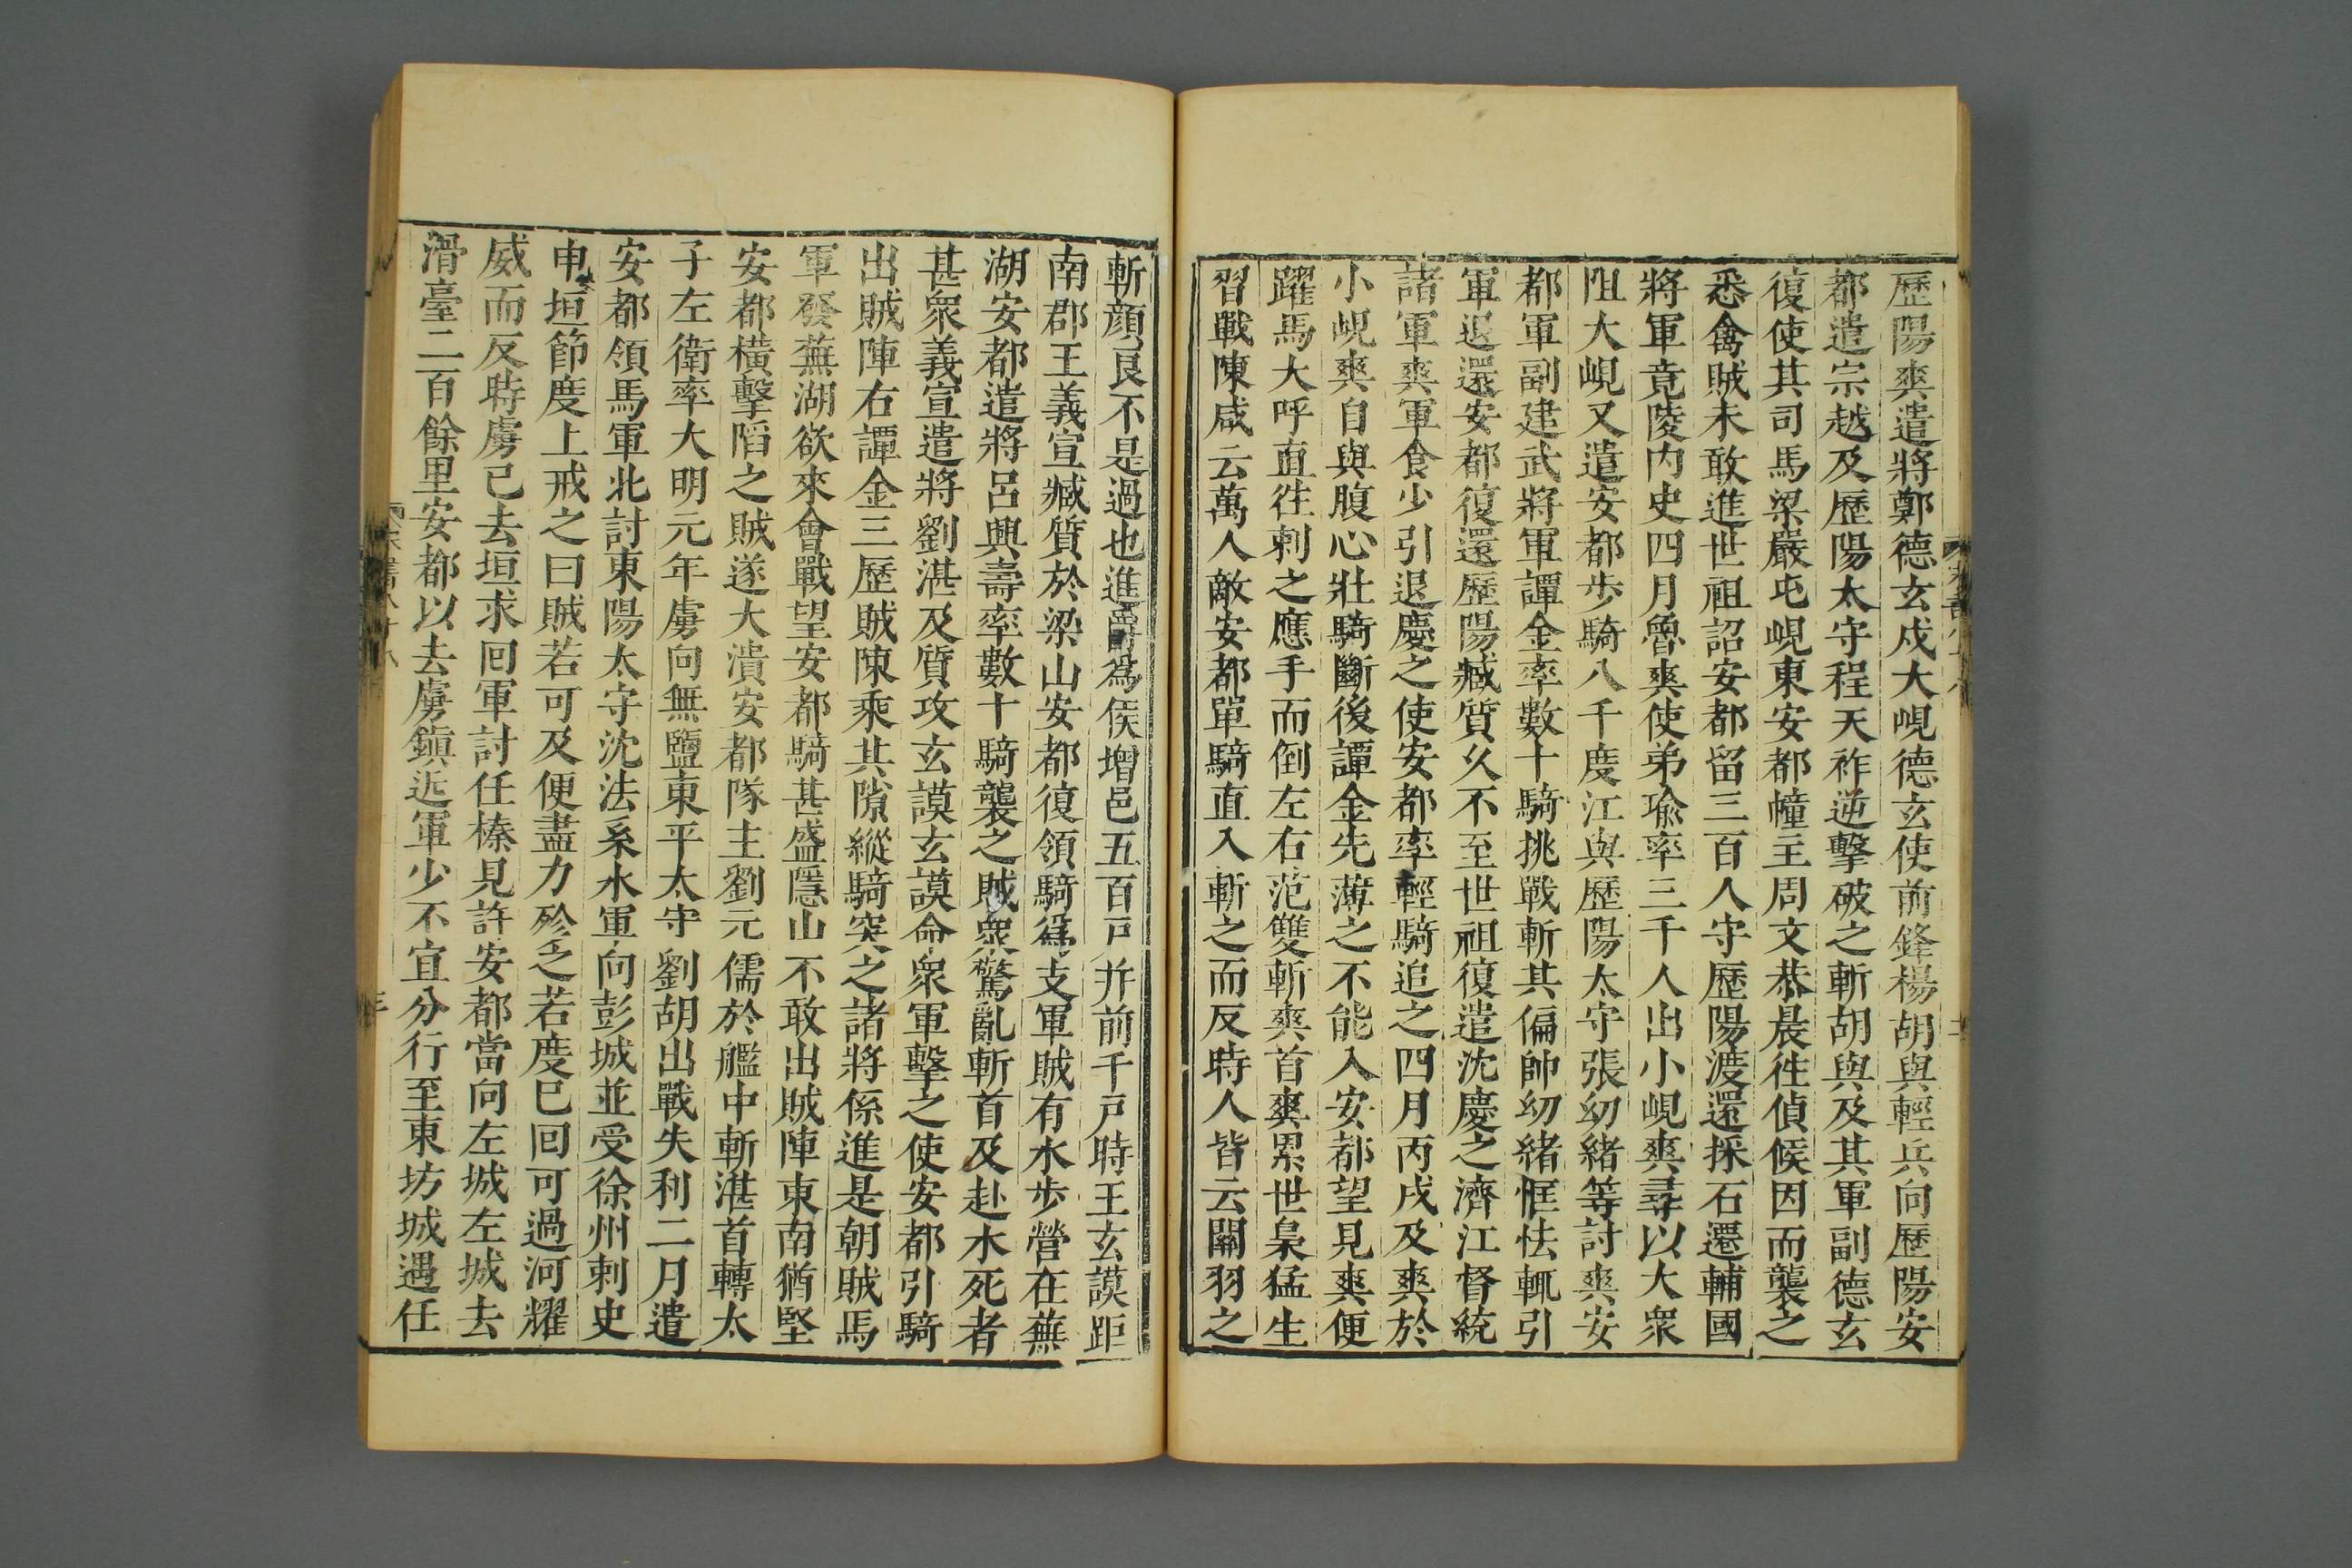 歷陽爽遣將鄭德玄戍大峴德玄使前鋒楊胡與輕兵向歷陽安
都遣宗越及歷陽太守程天祚逆擊破之斬胡與及其軍副德玄
復使其司馬梁嚴屯峴東安都幢主周文恭晨往偵候因而襲之
悉禽賊未敢進世祖詔安都留三百人守歷陽渡還採石遷輔國
將軍竟陵內史四月魯爽使弟瑜率三千人出小峴爽尋以大衆
阻大峴又遣安都步騎八千度江與歷陽太守張幼緒等討爽安
都軍副建武將軍譚金率數十騎挑戰斬其偏帥幼緒恇怯輒引
軍退還安都復還歷陽臧質久不至世祖復遣沈慶之濟江督統
諸軍爽軍食少引退慶之使安都率輕騎追之四月丙戌及爽於
小峴爽自與腹心壯騎斷後譚金先薄之不能入安都望見爽便
躍馬大呼直往刺之應手而倒左右范雙斬爽首爽累世梟猛生
習戰陳咸云萬人敵安都單騎直入斬之而反時人皆云關羽之
斬顏良不是過也進爵爲侯增邑五百戸幷前千戸時王玄謨距
南郡王義宣臧質於梁山安都復領騎爲支軍賊有水步營在蕪
湖安都遣將呂興壽率數十騎襲之賊衆驚亂斬首及赴水死者
甚衆義宣遣將劉湛及質攻玄謨玄謨命衆軍擊之使安都引騎
出賊陣右譚金三歷賊陳乘其隙縱騎突之諸將係進是朝賊馬
軍發蕪湖欲來會戰望安都騎甚盛隱山不敢出賊陣東南猶堅
安都橫擊䧟之賊遂大潰安都隊主劉元儒於艦中斬湛首轉太
子左衛率大明元年虜向無鹽東平太守劉胡出戰失利二月遣
安都領馬軍北討東陽太守沈法系水軍向彭城並受徐州刺史
申垣節度上戒之曰賊若可及便盡力殄之若度已回可過河耀
威而反時虜已去垣求回軍討任榛見許安都當向左城左城去
滑臺二百餘里安都以去虜鎭近軍少不宜分行至東坊城遇任